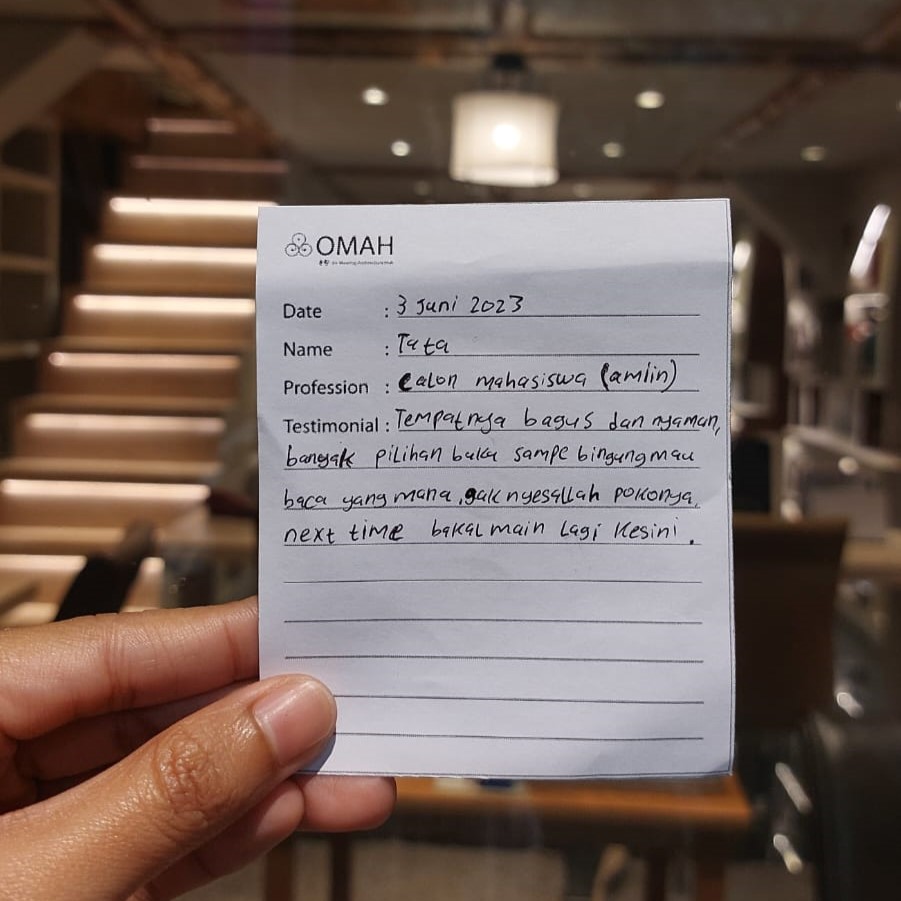 OMAH
Date : 3 Juni 2023
Name : Tata
Profession : Calon mahasiswa (amiin)
Testimonial : Tempatnya bagus dan nyaman,
banyak pilihan buku sampe bingung mau
baca yang mana, gak nyesallah pokonya,
next time bakal main lagi kesini.